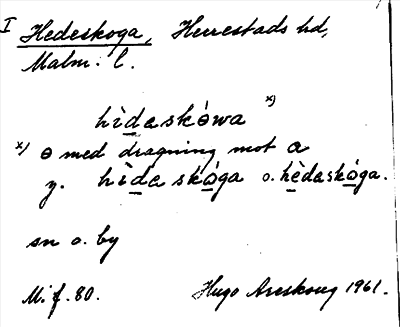 I Hedeskoga, Herrestads hd,
Malm. l.
hìdaskówa x)
x) ɵ med dragning mot a
y. hìda skóga o. hèdaskóga.
sn o. by
M. f. 80. Hugo Areskoug 1961.